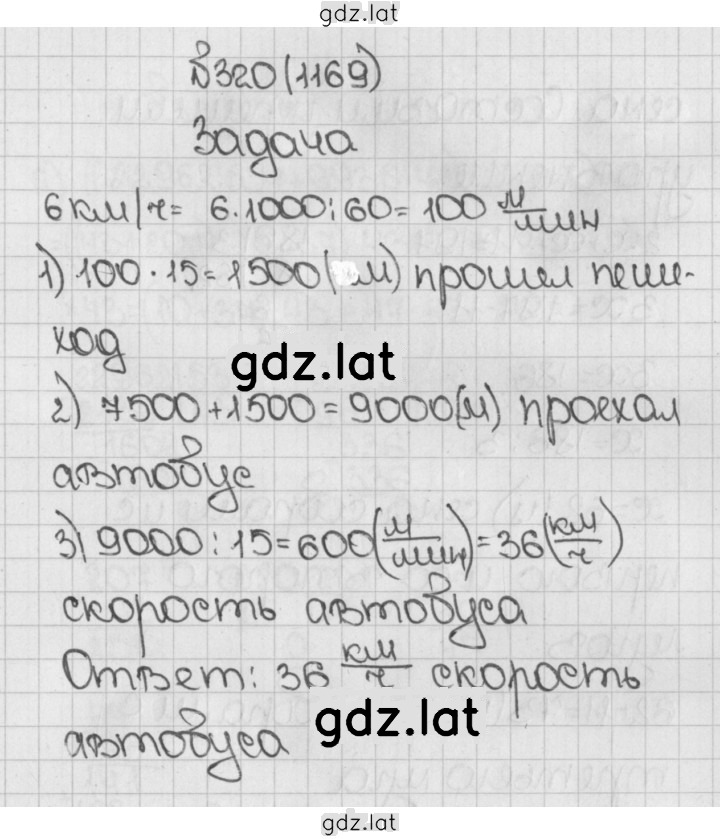 gdz.lat
№320(1169)
Задача
6 км/ч= 6·1000:60= 100 м/мин
1) 100·15=1500(м) прошел пеше-
ход
gdz.lat
2) 7500+1500=9000(м) проехал
автобус
3) 9000:15=600(м/мин)=36(км/ч)
скорость автобуса
Ответ: 36 км/ч скорость
автобуса
gdz.lat
gdz.lat